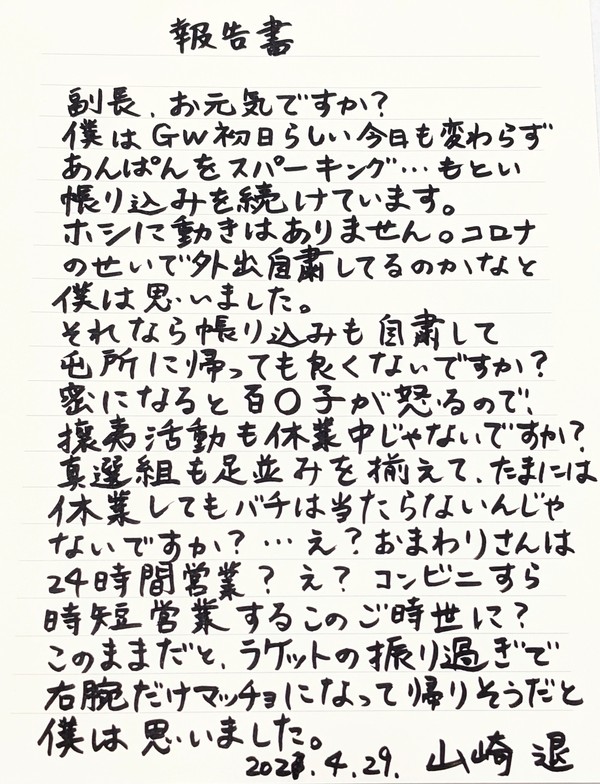 報告書
副長、お元気ですか?
僕はGW初日らしい今日も変わらず
あんぱんをスパーキング…もとい
帳り込みを続けています。
ホシに動きはありません。コロナ
のせいで外出自粛してるのかなと
僕は思いました。
それなら帳り込みも自粛して
屯所に帰っても良くないですか?
密になると百〇子が怒るので、
攘夷活動も休業中じゃないですか?
真選組も足並みを揃えて、たまには
休業してもバチは当たらないんじゃ
ないですか?…え?おまわりさんは
24時間営業?え?コンビニすら
時短営業するこのご時世に?
このままだと、ラケットの振り過ぎで
右腕だけマッチョになって帰りそうだと
僕は思いました。
2021.4.29. 山崎退